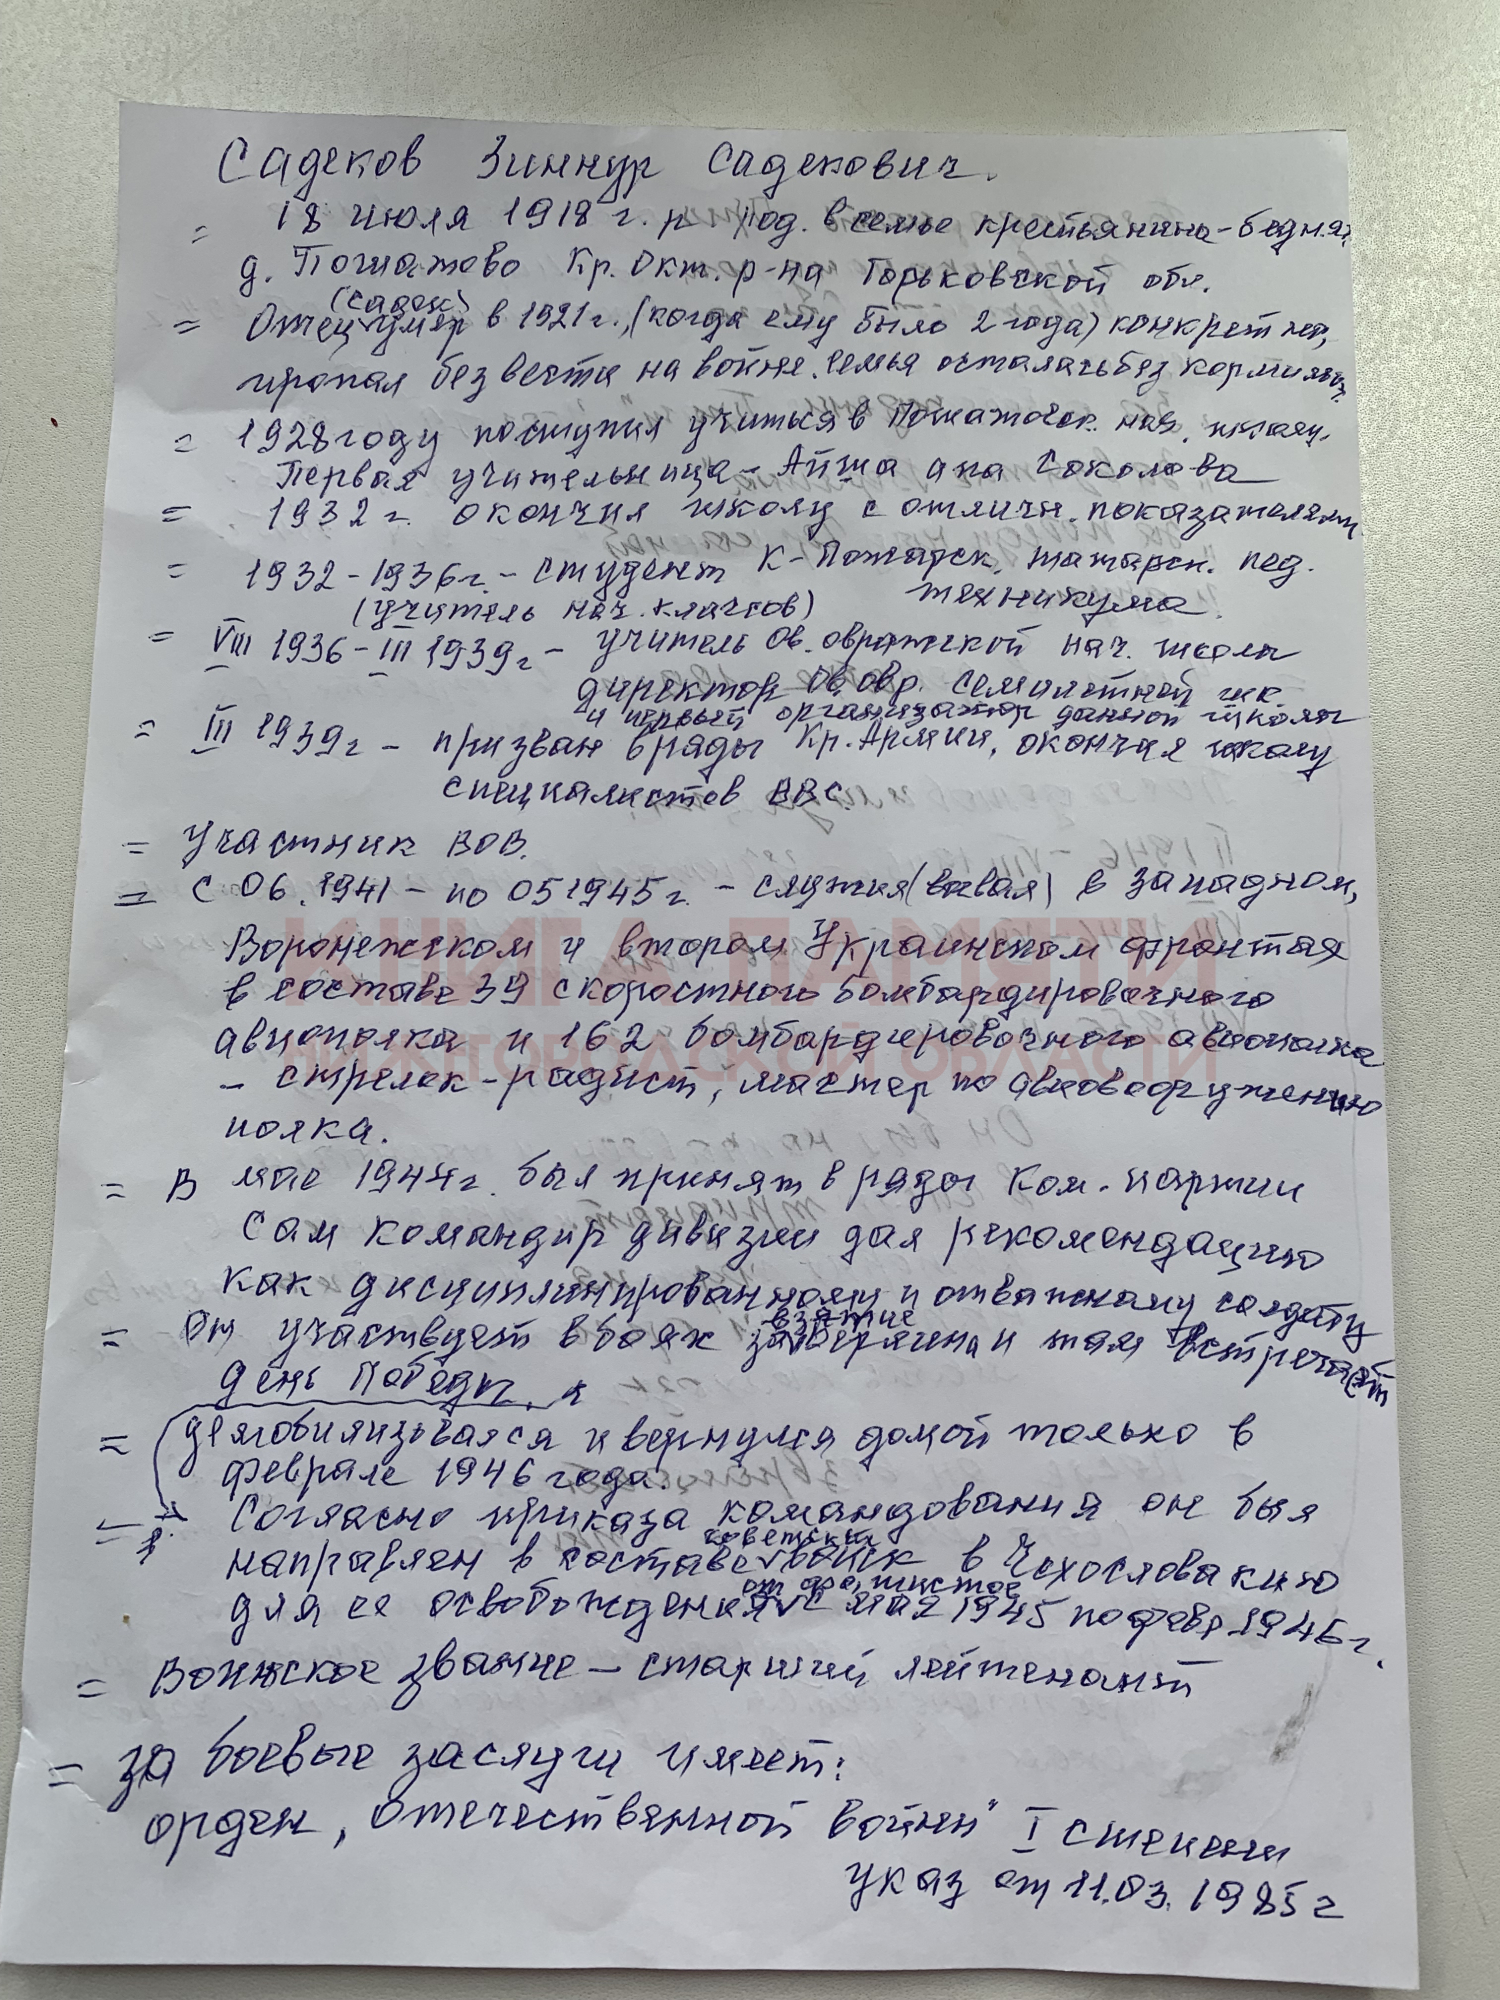 Садеков Зиннур Садекович.
= 18 июля 1918 г. р под. в семье крестьянина-бедняк
д. Пошатово Кр. Окт. р-на Горьковской обл.
(Садек)
= Отец умер в 1921 г., (когда ему было 2 года) конкретно,
пропал без вести на войне. Семья осталась без кормильц.
= 1928 году поступил учиться в Пошатовск. нач. школу.
Первая учительница - Айша апа Соколова
= 1932 г. окончил школу с отличн. показателями
= 1932-1936 г. - студент К-Пожарск. татарск. пед.
техникума
(учитель нач. классов)
= VIII 1936 - III 1939 г - учитель Ов. овражской нач. школы
директор Ов. овр. семилетней шк
и первый организатор данной школы
= III 1939 г - призван в ряды Кр. Армии, окончил школу
специалистов ВВС.
= Участник ВОВ.
= С 06. 1941 - по 05 1945 г. - служил (воевал) в западном,
Воронежском и втором Украинском фронтах
в составе 39 скоростного бомбардировочного
авиополка и 162 бомбардировочного авиополка
- стрелок-радист, мастер по авиовооружению
полка.
= В мае 1944 г. был принят в ряды Ком. партии
Сам командир дивизии дал рекомендацию
как дисциплинированному и отважному солдату
взятие
= Он участвует в боях за Берлина и там встречает
день Победы.
= демобилизовался и вернулся домой только в
феврале 1946 года.
= Согласно приказа командования он был
советских
направлен в составе войск в Чехословакию
от фашистов
для ее освобождения с мая 1945 по февр. 1946 г.
= Воинское звание - старший лейтенант
= За боевые заслуги имеет:
орден „Отечественной войны" I степени
указ от 11.03.1985 г
КНИГА ПАМЯТИ
НИЖЕГОРОДСКОЙ ОБЛАСТИ